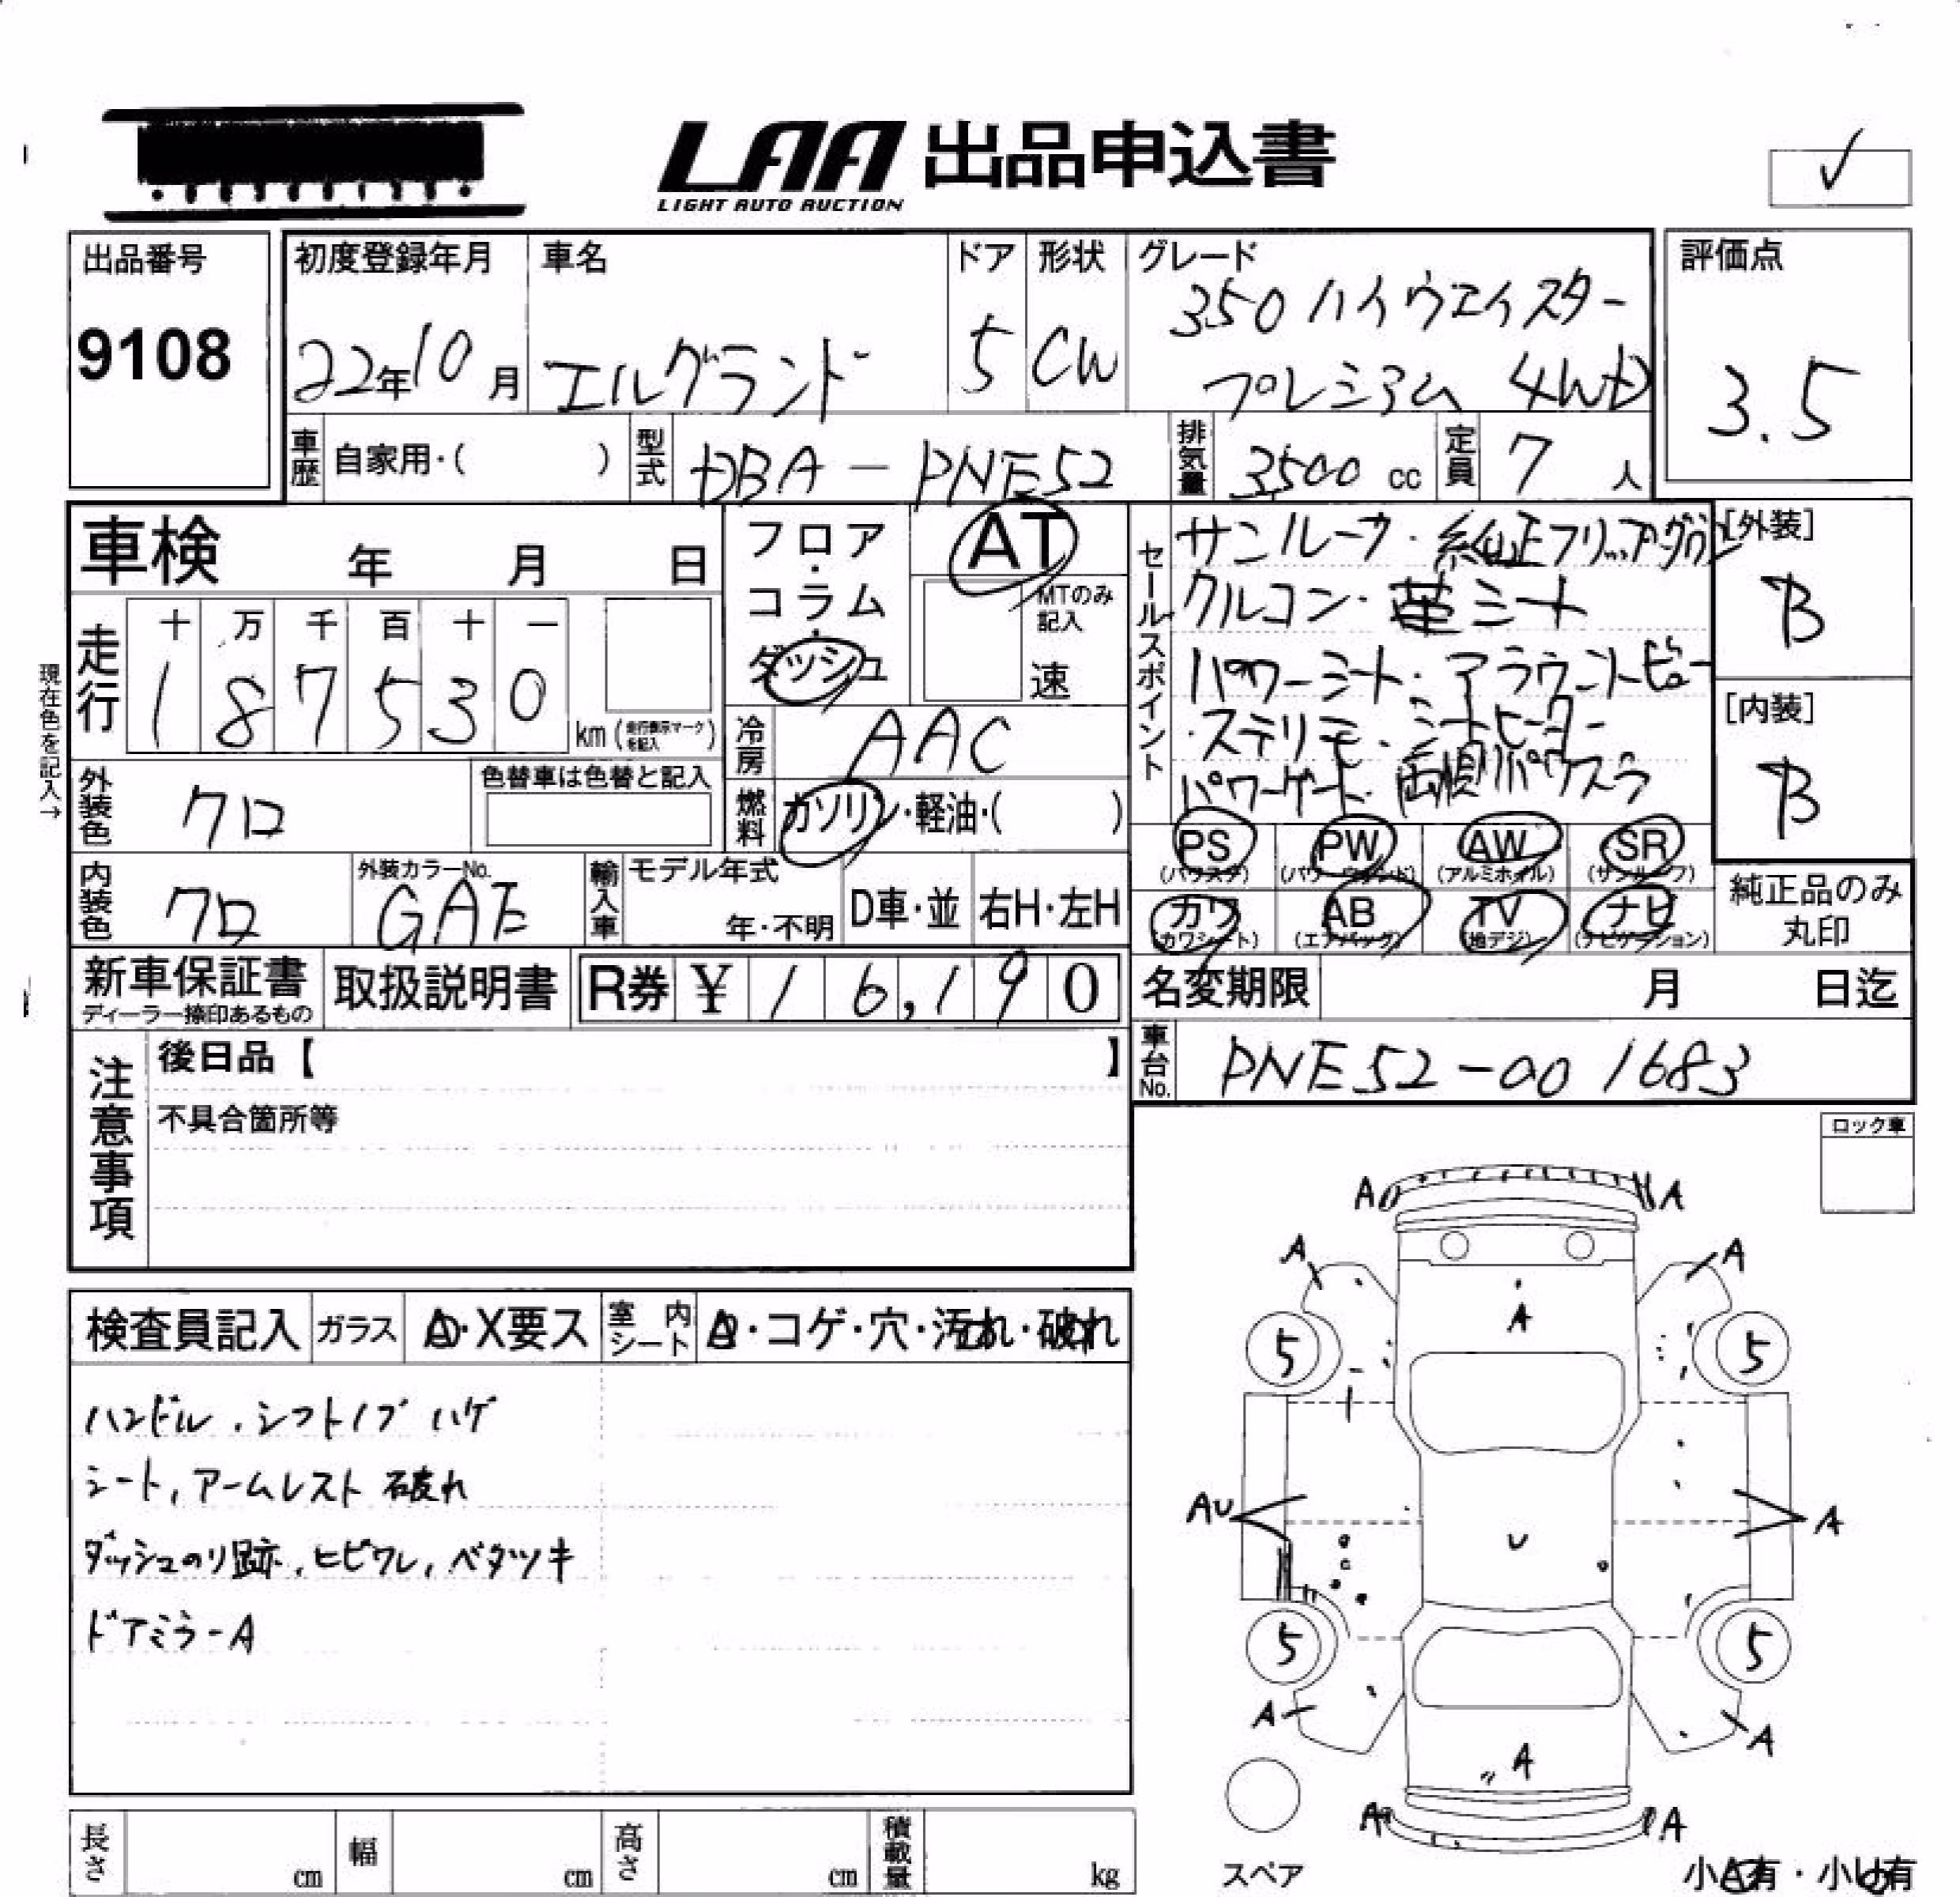 LAA 出品申込書
LIGHT AUTO AUCTION
✓
出品番号
9108
初度登録年月
22年10月
車名
エルグランド
ドア
5
形状
CW
グレード
350 ハイウエイスター
プレミアム 4WD
評価点
3.5
車歴 自家用・( )
型式 DBA-PNE52
排気量 3500 cc
定員 7 人
車検 年 月 日
フロア・コラム・ダッシュ
AT
MTのみ記入
速
セールスポイント
サンルーフ・純正フリップダウン
クルコン・革シート
パワーシート・アラウンドビュー
・ステリモ・シートヒーター
パワーゲート 両側パワスラ
[外装]
B
[内装]
B
現在色を記入→
走行
十 万 千 百 十 一
1 8 7 5 3 0
km(走行表示マークを記入)
冷房 AAC
外装色 クロ
色替車は色替と記入
燃料 ガソリン・軽油・( )
PS (パワステ)
PW (パワーウインド)
AW (アルミホイル)
SR (サンルーフ)
内装色 クロ
外装カラーNo.
GAE
輸入車
モデル年式
年・不明
D車・並
右H・左H
カワ (カワシート)
AB (エアバッグ)
TV (地デジ)
ナビ (ナビゲーション)
純正品のみ
丸印
新車保証書
ディーラー捺印あるもの
取扱説明書
R券 ¥ 16,190
名変期限 月 日迄
注意事項
後日品【 】
不具合箇所等
車台No. PNE52-001683
ロック車
検査員記入
ガラス
A・X要ス
室内シート
・コゲ・穴・汚れ・破れ
ハンドル、シフトノブ ハゲ
シート、アームレスト 破れ
ダッシュのり跡、ヒビワレ、ベタツキ
ドアミラーA
A A
A A
A
5 5
AU A
U
5 5
A A
A
A A
スペア
小A有・小U有
長さ cm
幅 cm
高さ cm
積載量 kg